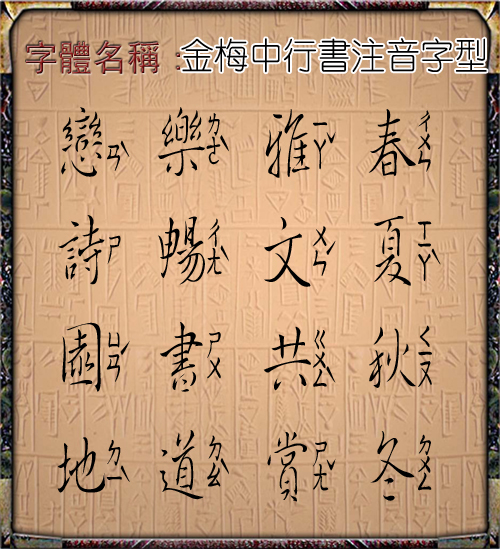 字體名稱:金梅中行書注音字型
春ㄔㄨㄣ夏ㄒㄧㄚˋ秋ㄑㄧㄡ冬ㄉㄨㄥ
雅ㄧㄚˇ文ㄨㄣˊ共ㄍㄨㄥˋ賞ㄕㄤˇ
樂ㄌㄜˋ暢ㄔㄤˋ書ㄕㄨ道ㄉㄠˋ
戀ㄌㄢˋ詩ㄕ園ㄩㄢˊ地ㄉㄧˋ